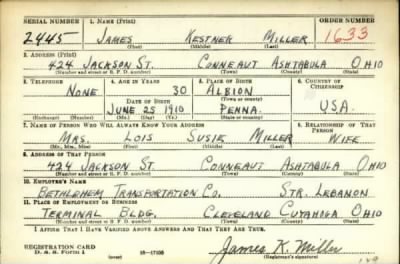 SERIAL NUMBER 1. NAME (Print) ORDER NUMBER
2445 JAMES KESTNER MILLER 1633
(First) (Middle) (Last)
2. ADDRESS (Print)
424 JACKSON ST. CONNEAUT ASHTABULA OHIO
(Number and street or R. F. D. number) (Town) (County) (State)
3. TELEPHONE 4. AGE IN YEARS 5. PLACE OF BIRTH 6. COUNTRY OF CITIZENSHIP
NONE 30 ALBION
DATE OF BIRTH (Town or county)
JUNE 25 1910 PENNA. USA.
(Exchange) (Number) (Mo.) (Day) (Yr.) (State or country)
7. NAME OF PERSON WHO WILL ALWAYS KNOW YOUR ADDRESS 8. RELATIONSHIP OF THAT PERSON
MRS. LOIS SUSIE MILLER WIFE
(Mr., Mrs., Miss) (First) (Middle) (Last)
9. ADDRESS OF THAT PERSON
424 JACKSON ST. CONNEAUT ASHTABULA OHIO
(Number and street or R. F. D. number) (Town) (County) (State)
10. EMPLOYER'S NAME
BETHLEHEM TRANSPORTATION CO. STR. LEBANON
11. PLACE OF EMPLOYMENT OR BUSINESS
TERMINAL BLDG. CLEVELAND CUYAHOGA OHIO
(Number and street or R. F. D. number) (Town) (County) (State)
I AFFIRM THAT I HAVE VERIFIED ABOVE ANSWERS AND THAT THEY ARE TRUE.
REGISTRATION CARD James K. Miller
D. S. S. Form 1 (over) 16-17105 (Registrant's signature)